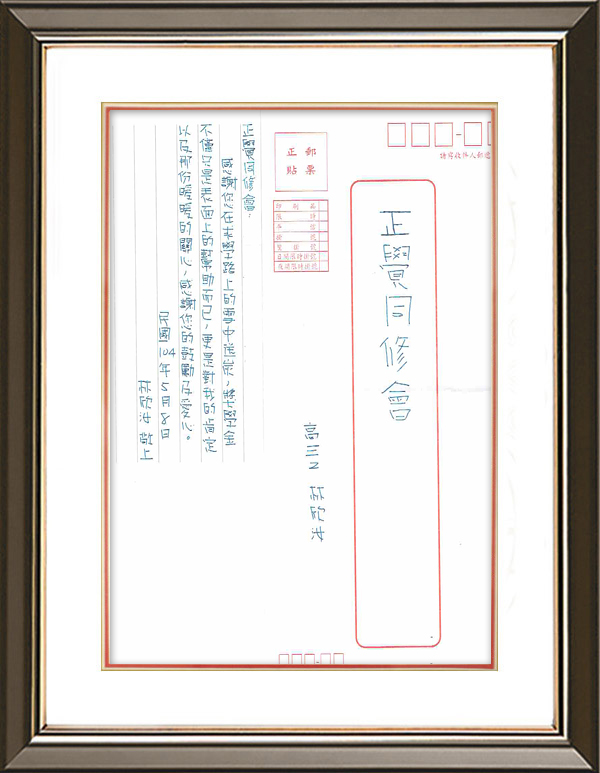 請寫收件人郵遞
正覺同修會
高三乙 林欣汝
正郵
貼票
印刷品
限時
掛號
正覺同修會：
感謝您在求學路上的雪中送炭，獎學金
不僅只是表面上的幫助而已，更是對我的肯定
以及那份暖暖的關心，感謝您的鼓勵及愛心。
民國104年5月8日
林欣汝 敬上